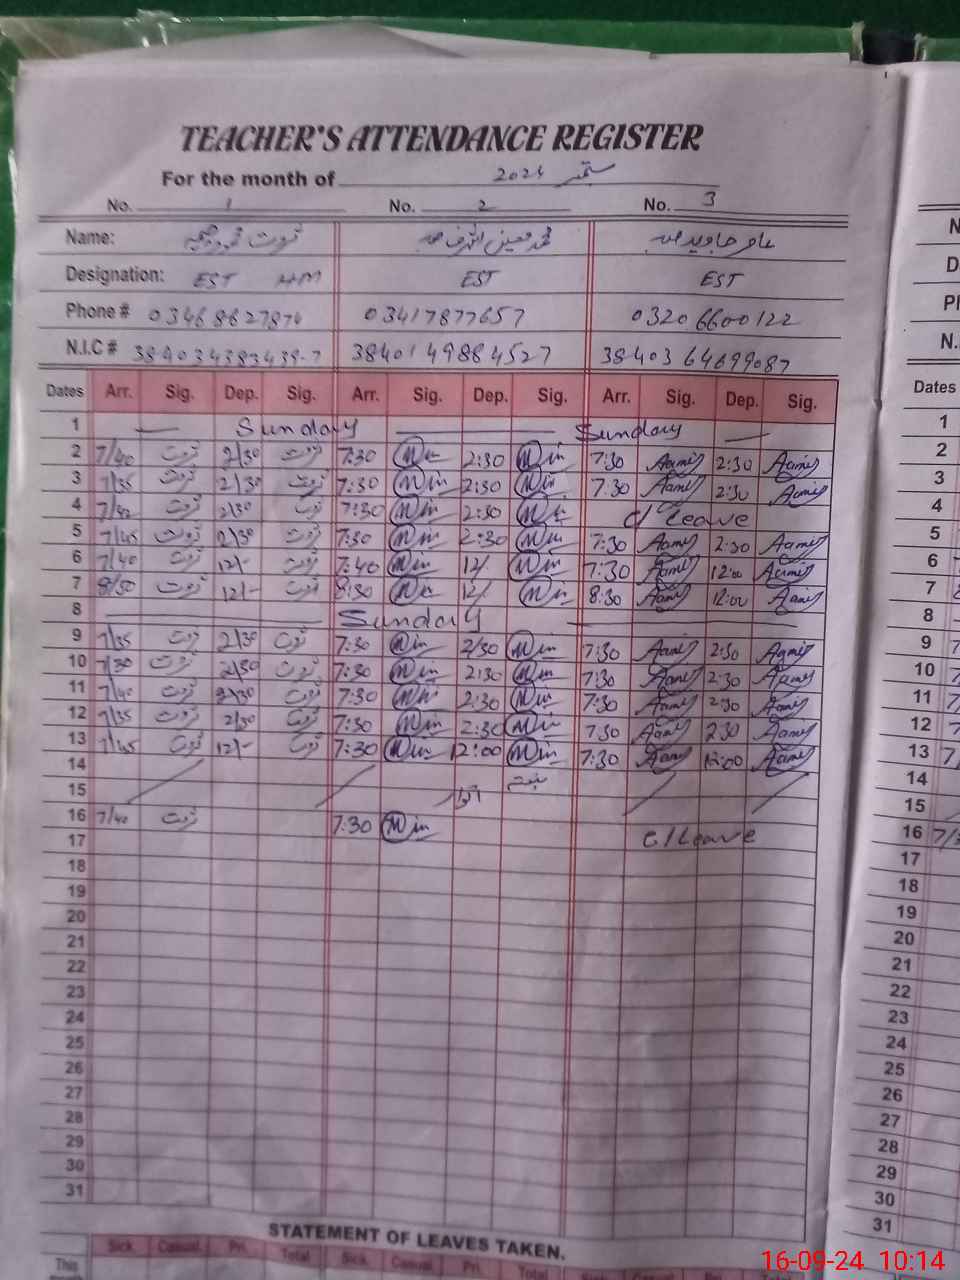 TEACHER'S ATTENDANCE REGISTER
For the month of ستمبر 2024
No. 1 No. 2 No. 3
Name: ثروت محمود
Designation: EST HM EST EST
Phone # 03468627874 03417877657 0320 6600122
N.I.C # 3840149884527 38403 64699087
Dates Arr. Sig. Dep. Sig. Arr. Sig. Dep. Sig. Arr. Sig. Dep. Sig.
1 — Sunday — Sunday —
2 7/40 ثروت 2/30 ثروت 7:30 Min 2:30 Min 7:30 Aamir 2:30 Aamir
3 7/35 ثروت 2/30 ثروت 7:30 Min 2:30 Min 7:30 Aamir 2:30 Aamir
4 7/42 ثروت 2/30 ثروت 7:30 Min 2:30 Min C/Leave
5 7/45 ثروت 2/30 ثروت 7:30 Min 2:30 Min 7:30 Aamir 2:30 Aamir
6 7/40 ثروت 12/- ثروت 7:40 Min 12/ Min 7:30 Aamir 12:00 Aamir
7 8/50 ثروت 12/- ثروت 8:30 Min 12/ Min 8:30 Aamir 12:00 Aamir
8 Sunday
9 7/35 ثروت 2/30 ثروت 7:30 Min 2/30 Min 7:30 Aamir 2:30 Aamir
10 7/30 ثروت 2/30 ثروت 7:30 Min 2:30 Min 7:30 Aamir 2:30 Aamir
11 7/40 ثروت 2/30 ثروت 7:30 Min 2:30 Min 7:30 Aamir 2:30 Aamir
12 7/35 ثروت 2/30 ثروت 7:30 Min 2:30 Min 7:30 Aamir 2:30 Aamir
13 7/45 ثروت 12/- ثروت 7:30 Min 12:00 Min 7:30 Aamir 12:00 Aamir
14 ہفتہ
15 اتوار
16 7/40 ثروت 7:30 Min C/Leave
17
18
19
20
21
22
23
24
25
26
27
28
29
30
31
STATEMENT OF LEAVES TAKEN.
This Sick Casual Pri. Total Sick Casual Pri. Total Sick
Dates
1
2
3
4
5
6
7
8
9
10
11
12
13
14
15
16
17
18
19
20
21
22
23
24
25
26
27
28
29
30
31
16-09-24 10:14